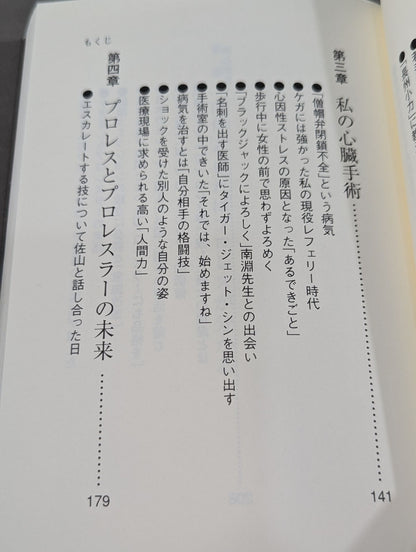 第三章 私の心臓手術……………………141
●「僧帽弁閉鎖不全」という病気
●ケガには強かった私の現役レフェリー時代
●心因性ストレスの原因となった「あるできごと」
●歩行中に女性の前で思わずよろめく
●「ブラックジャックによろしく」南淵先生との出会い
●「名刺を出す医師」にタイガー・ジェット・シンを思い出す
●手術室の中できいた「それでは、始めますね」
●病気を治すとは「自分相手の格闘技」
●ショックを受けた別人のような自分の姿
●医療現場に求められる高い「人間力」
第四章 プロレスとプロレスラーの未来……………………179
●エスカレートする技について佐山と話し合った日
もくじ